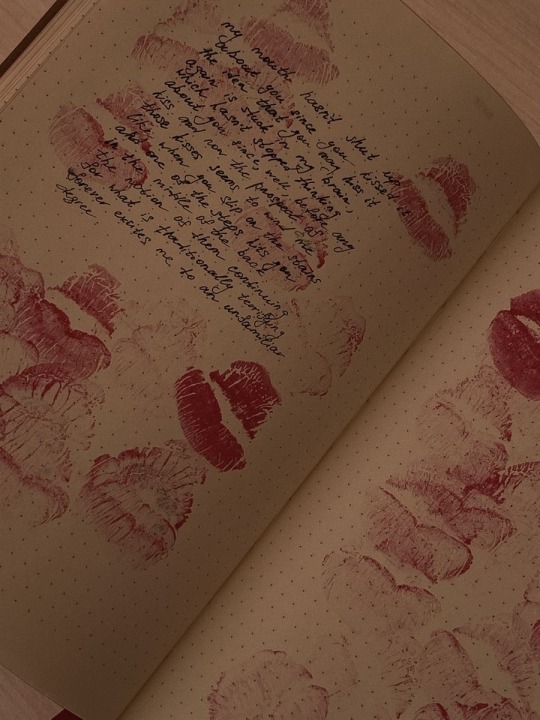 my mouth hasn't shut up
about you since you kissed it
the idea that you may kiss it
again is stuck in my brain,
which hasn't stopped thinking
about you since well before any
kiss and now the prospect of
those kisses seems to wind me
like when you slip on the stairs
and one of the steps hits you
in the middle of the back
the notion of them continuing
for what is traditionally terrifying
forever excites me to an unfamiliar
degree